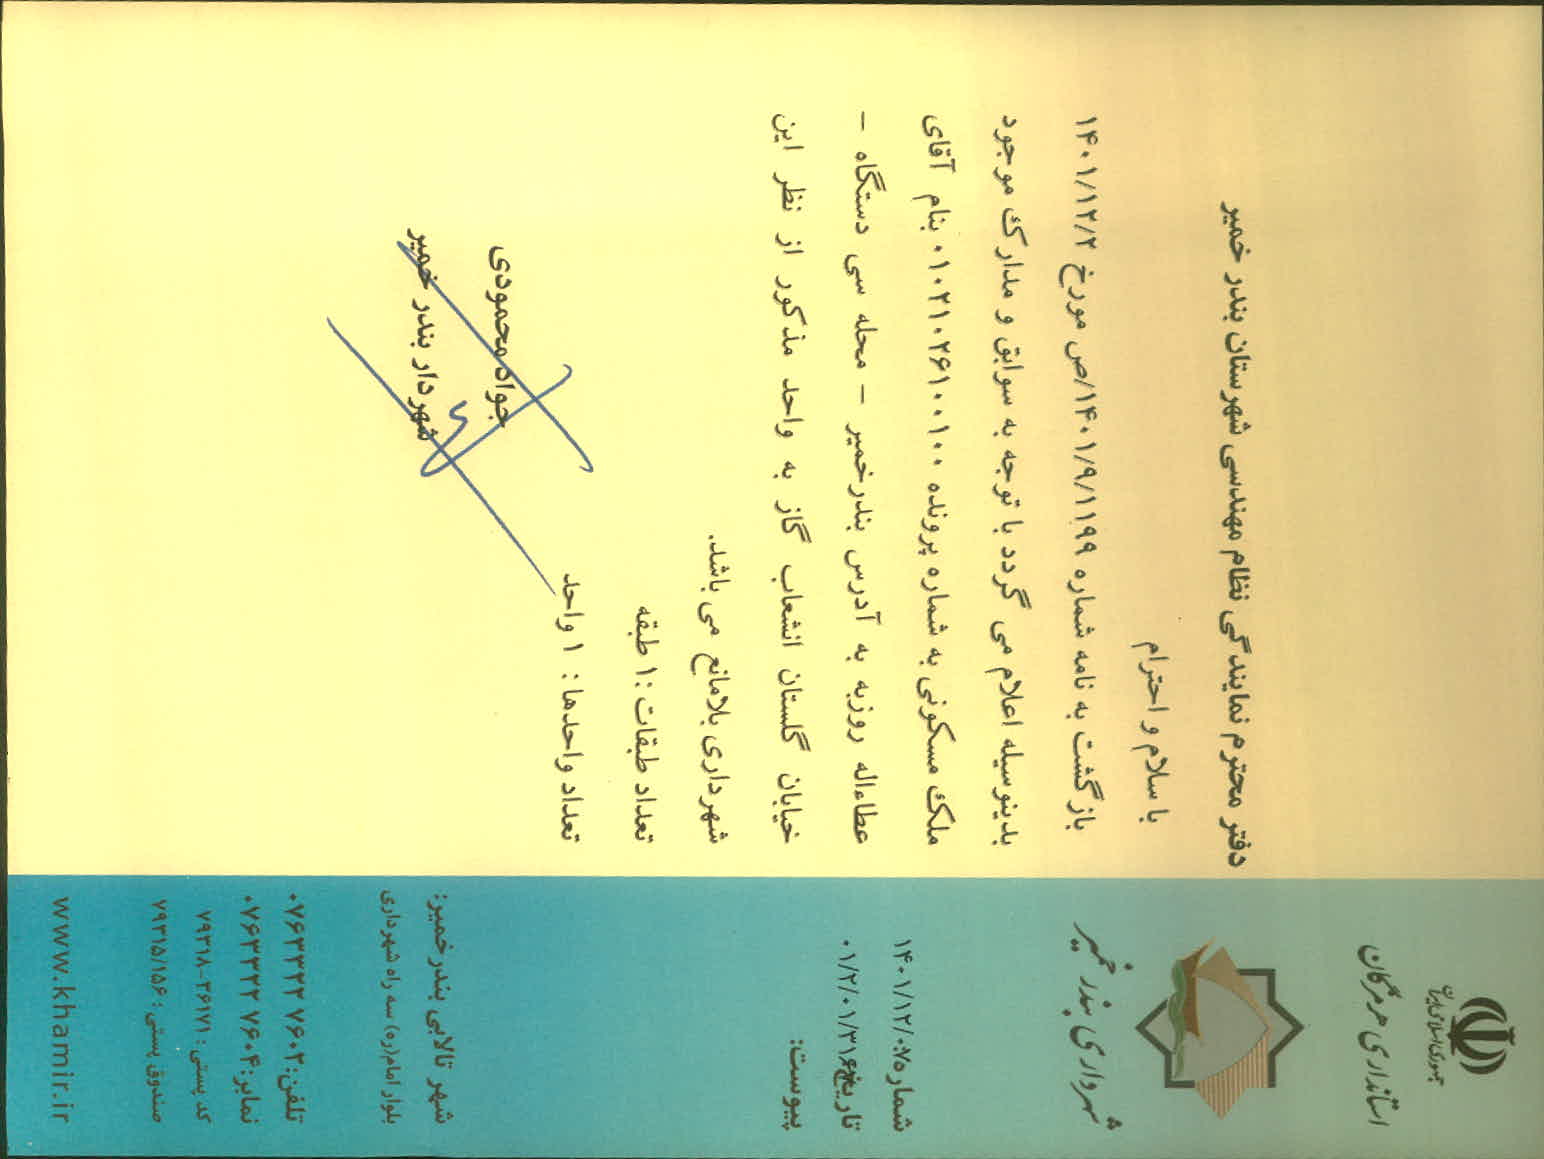 جمهوری اسلامی ایران
استانداری هرمزگان
شهرداری بندر خمیر
شماره: ۱۴۰۱/۱۲/۰۷
تاریخ: ۰۱/۲/۰۱/۳۱۶۴
پیوست:
دفتر محترم نمایندگی نظام مهندسی شهرستان بندر خمیر
با سلام و احترام
بازگشت به نامه شماره ۱۴۰۱/۹/۱۱۹۹/ص مورخ ۱۴۰۱/۱۲/۲
بدینوسیله اعلام می گردد با توجه به سوابق و مدارک موجود
ملک مسکونی به شماره پرونده ۰۱۰۲۱۰۲۶۱۰۰۱۰۰ بنام آقای
عطاءاله روزبه به آدرس بندرخمیر – محله سی دستگاه –
خیابان گلستان انشعاب گاز به واحد مذکور از نظر این
شهرداری بلامانع می باشد.
تعداد طبقات :۱ طبقه
تعداد واحدها: ۱ واحد
جواد محمودی
شهردار بندر خمیر
شهر تالابی بندر خمیر:
بلوار امام(ره) سه راه شهرداری
تلفن: ۰۷۶۳۳۲۲ ۷۶۰۲
نمابر: ۰۷۶۳۳۲۲ ۷۶۰۴
کد پستی : ۷۹۳۱۸-۳۶۱۷۱
صندوق پستی : ۷۹۳۱۵/۱۵۶
www.khamir.ir